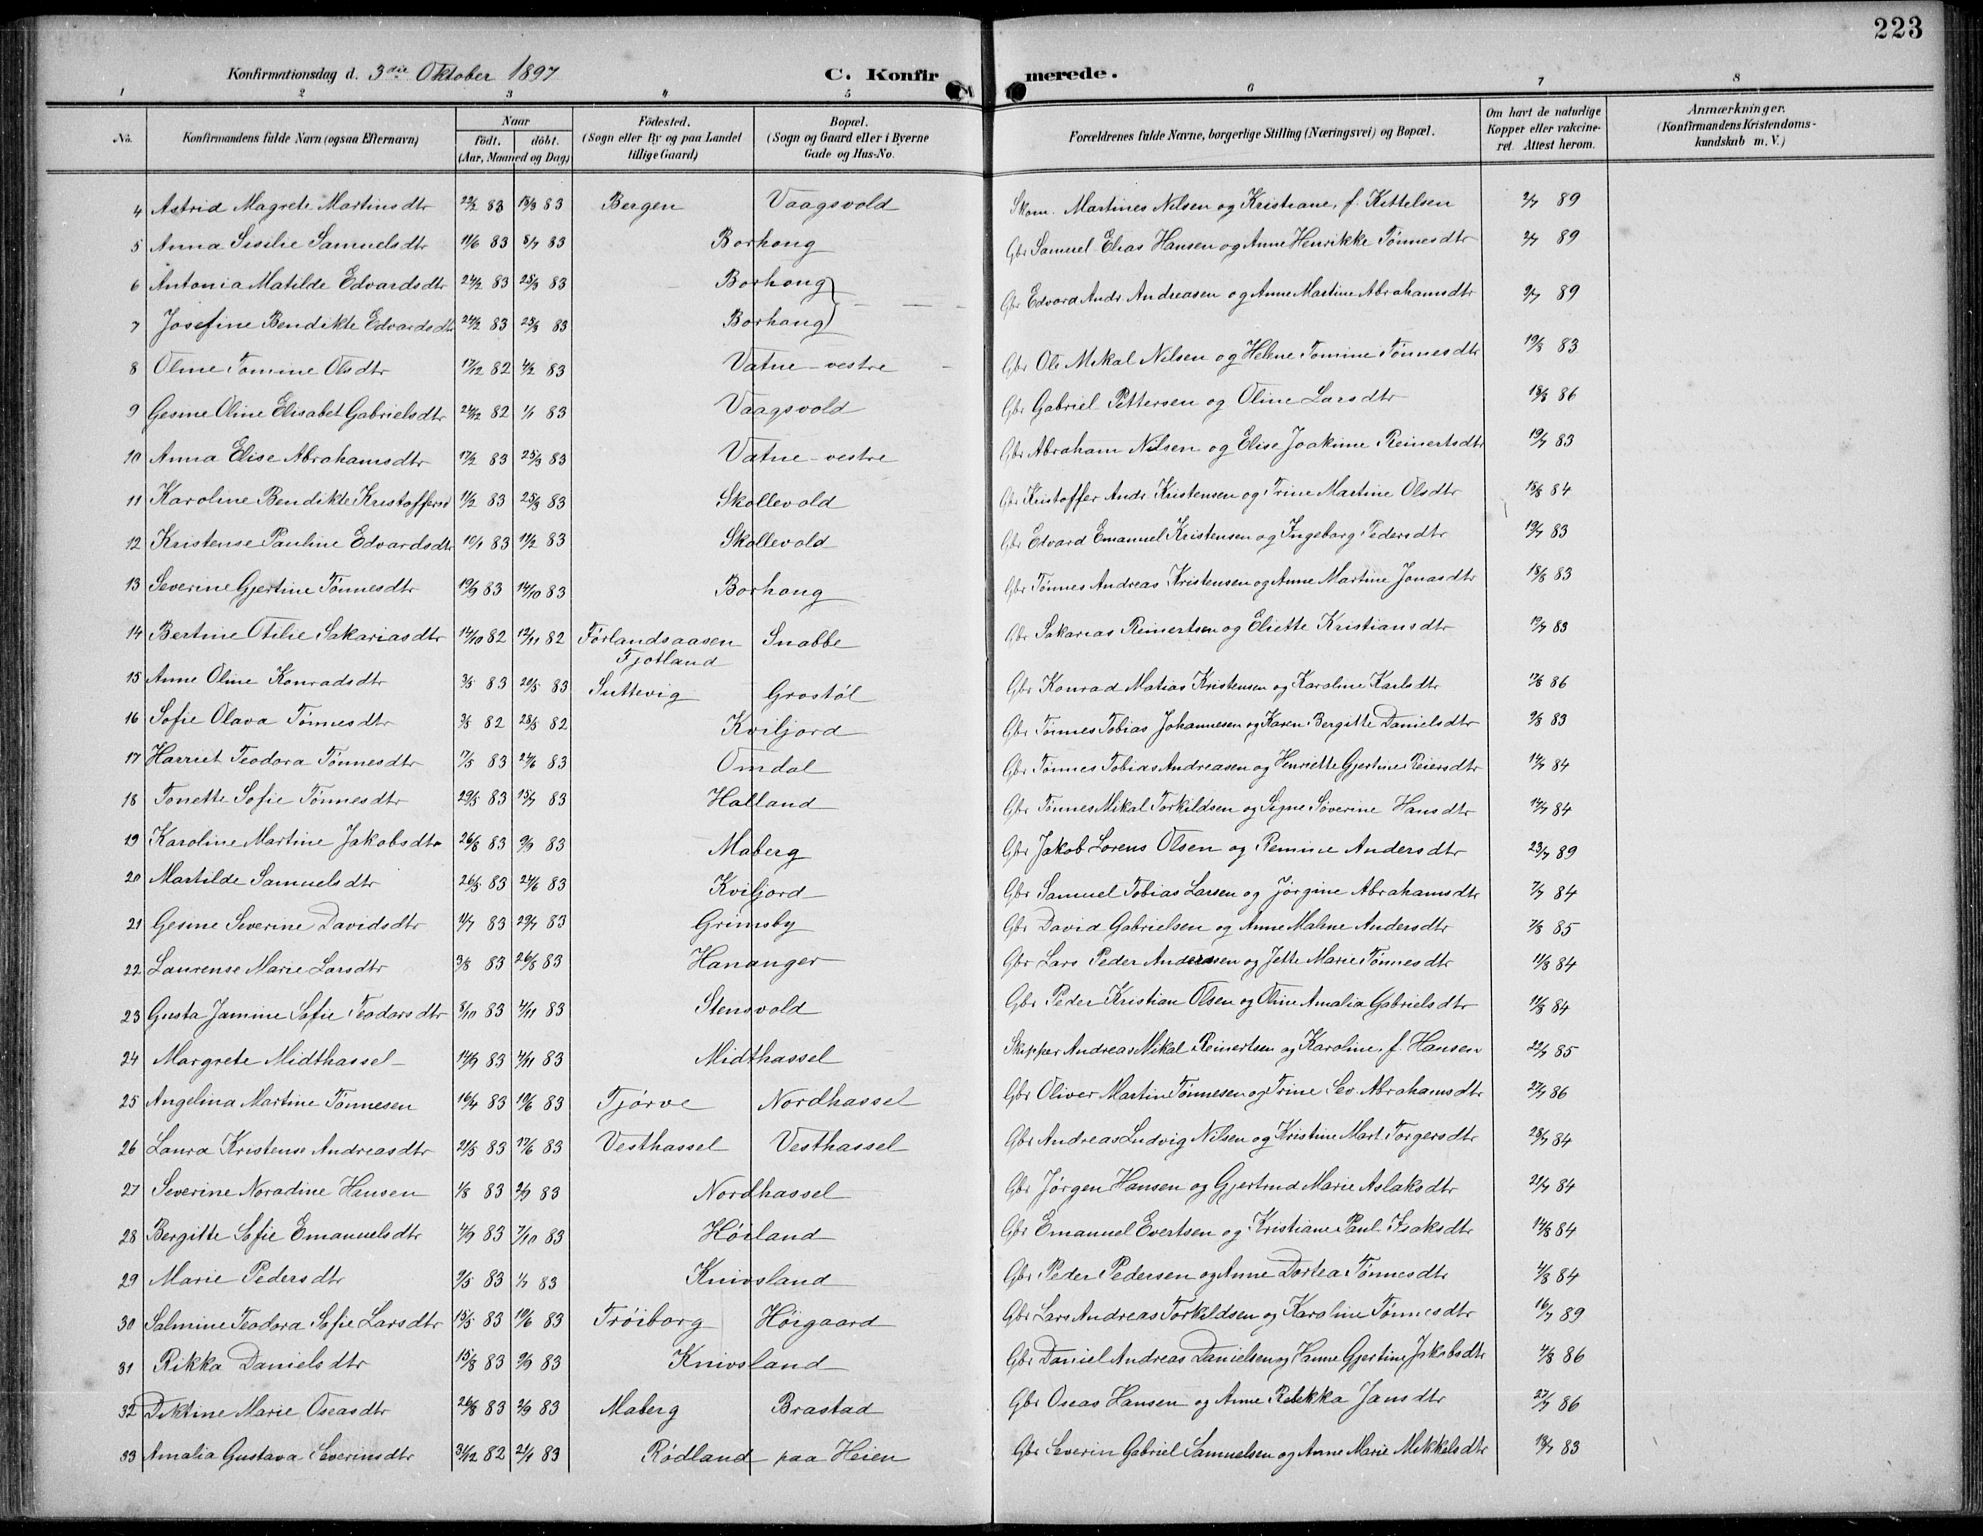 223
Konfirmationsdag d. 3die Oktober 1897 C. Konfirmerede.
1 2 3 4 5 6 7 8
No. Konfirmandens fulde Navn (ogsaa Efternavn) Naar født. døbt. (Aar, Maaned og Dag) Fødested. (Sogn eller By og paa Landet tillige Gaard) Bopæl. (Sogn og Gaard eller i Byerne Gade og Hus-No. Forældrenes fulde Navne, borgerlige Stilling (Næringsvei) og Bopæl. Om havt de naturlige Kopper eller vakcineret. Attest herom. Anmærkninger. (Konfirmandens Kristendomskundskab m. V.)
4 Astrid Magrete Martinsdtr 22/2 83 18/3 83 Bergen Vaagsvold Skom. Martines Nilsen og Kristiane, f. Kittelsen 2/7 89
5 Anna Sisilie Samuelsdtr 11/6 83 8/7 83 Borhong Gbr Samuel Elias Hansen og Anne Henrikke Tønnesdtr 2/7 89
6 Antonia Matilde Edvardsdtr 24/2 83 25/3 83 Borhong Gbr Edvard Andr Andreasen og Anne Martine Abrahamsdtr 2/7 89
7 Josefine Bendikte Edvardsdtr 24/2 83 25/3 83 Borhong
8 Oline Tomine Olsdtr 17/12 82 4/2 83 Vatne vestre Gbr Ole Mikal Nilsen og Helene Tomine Tønnesdtr 19/7 83
9 Gesine Oline Elisabet Gabrielsdtr 24/12 82 1/1 83 Vaagsvold Gbr Gabriel Pettersen og Oline Larsdtr 18/8 86
10 Anna Elise Abrahamsdtr 17/2 83 25/3 83 Vatne vestre Gbr Abraham Nilsen og Elise Joakime Reinertsdtr 19/7 83
11 Karoline Bendikte Kristoffersd 11/2 83 25/3 83 Skollevold Gbr Kristoffer Andr Kristensen og Trine Martine Olsdtr 15/8 84
12 Kristense Pauline Edvardsdtr 10/1 83 11/2 83 Skollevold Gbr Edvard Emanuel Kristensen og Ingeborg Pedersdtr 19/7 83
13 Severine Gjertine Tønnesdtr 19/9 83 14/10 83 Borhong Gbr Tønnes Andreas Kristensen og Anne Martine Jonasdtr 18/8 83
14 Bertine Otilie Sakariasdtr 14/10 82 12/11 82 Førlandsaasen Fjotland Snabbe Gbr Sakarias Reinertsen og Eliette Kristiansdtr 19/7 83
15 Anne Oline Konradsdtr 3/5 83 20/5 83 Suttevig Grostøl Gbr Konrad Matias Kristensen og Karoline Karlsdtr 17/8 86
16 Sofie Olava Tønnesdtr 3/5 82 28/5 82 Kviljord Gbr Tønnes Tobias Johannesen og Karen Bergitte Danielsdtr 9/8 83
17 Harriet Teodora Tønnesdtr 17/5 83 24/6 83 Omdal Gbr Tønnes Tobias Andreasen og Henriette Gjertine Reiersdtr 14/7 84
18 Tonette Sofie Tønnesdtr 29/5 83 15/7 83 Halland Gbr Tønnes Mikal Torkildsen og Signe Søverine Hansdtr 14/7 84
19 Karoline Martine Jakobsdtr 26/8 83 9/9 83 Maberg Gbr Jakob Lorens Olsen og Remine Andersdtr 23/7 89
20 Martilde Samuelsdtr 26/5 83 24/6 83 Kviljord Gbr Samuel Tobias Larsen og Jørgine Abrahamsdtr 7/7 84
21 Gesine Severine Davidsdtr 11/7 83 29/7 83 Grimsby Gbr David Gabrielsen og Anne Malene Andersdtr 7/8 85
22 Laurense Marie Larsdtr 3/8 83 26/8 83 Hananger Gbr Lars Peder Andersen og Jette Marie Tønnesdtr 11/8 84
23 Gusta Jamine Sofie Teodorsdtr 8/10 83 4/11 83 Stensvold Gbr Peder Kristian Olsen og Oline Amalia Gabrielsdtr 11/8 84
24 Margrete Midthassel 14/9 83 4/11 83 Midthassel Skipper Andreas Mikal Reinertsen og Karoline, f. Hansen 22/7 85
25 Angelina Martine Tønnesen 16/4 83 10/6 83 Tjørve Nordhassel Gbr Oliver Martin Tønnesen og Trine Sev. Abrahamsdtr 27/7 86
26 Laura Kristense Andreasdtr 21/5 83 17/6 83 Vesthassel Vesthassel Gbr Andreas Ludvig Nilsen og Kristine Mart Torgersdtr 28/7 84
27 Severine Noradine Hansen 1/8 83 2/9 83 Nordhassel Gbr Jørgen Hansen og Gjertrud Marie Aslaksdtr 21/7 84
28 Bergitte Sofie Emanuelsdtr 4/9 83 7/10 83 Høiland Gbr Emanuel Evertsen og Kristiane Paul. Isaksdtr 14/8 84
29 Marie Pedersdtr 9/5 83 1/7 83 Knivsland Gbr Peder Pedersen og Anne Dortea Tønnesdtr 4/8 84
30 Salmine Teodora Sofie Larsdtr 15/5 83 10/6 83 Trøiborg Høigaard Gbr Lars Andreas Torkildsen og Karoline Tønnesdtr 16/7 89
31 Rikka Danielsdtr 15/8 83 9/9 83 Knivsland Gbr Daniel Andreas Danielsen og Hanne Gjertine Jakobsdtr 4/8 86
32 Diktine Marie Oseasdtr 26/8 83 2/9 83 Maberg Brastad Gbr Oseas Hansen og Anne Rebekka Jansdtr 27/7 86
33 Amalia Gustava Severinsdtr 31/12 82 21/1 83 Rødland paa Heien Gbr Severin Gabriel Samuelsen og Anne Marie Mikkelsdtr 18/7 83